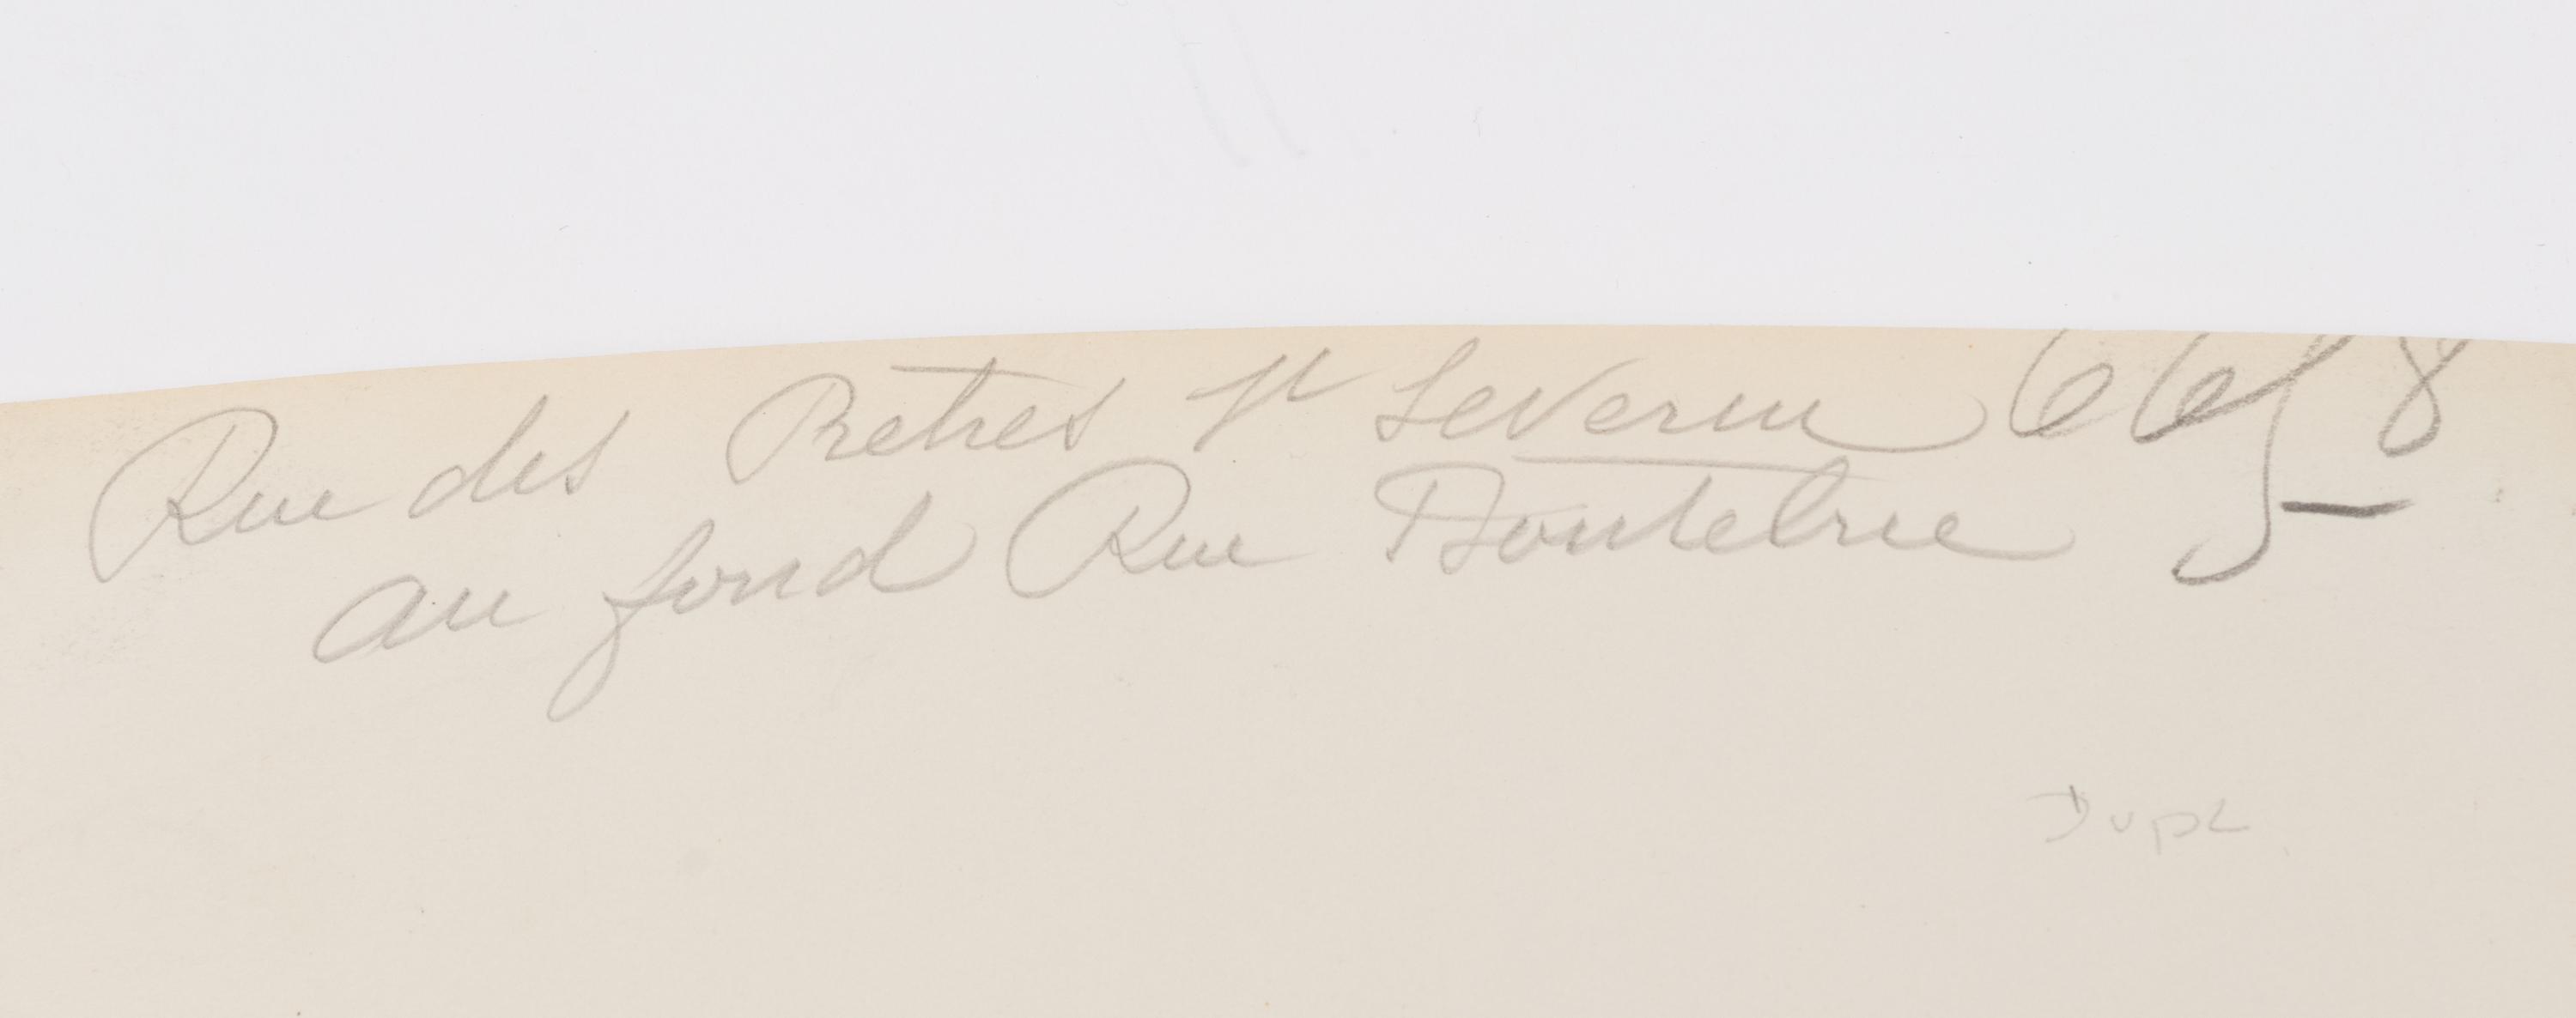 Rue des Pretres St Severin
au fond Rue Boutebrie
Dupl